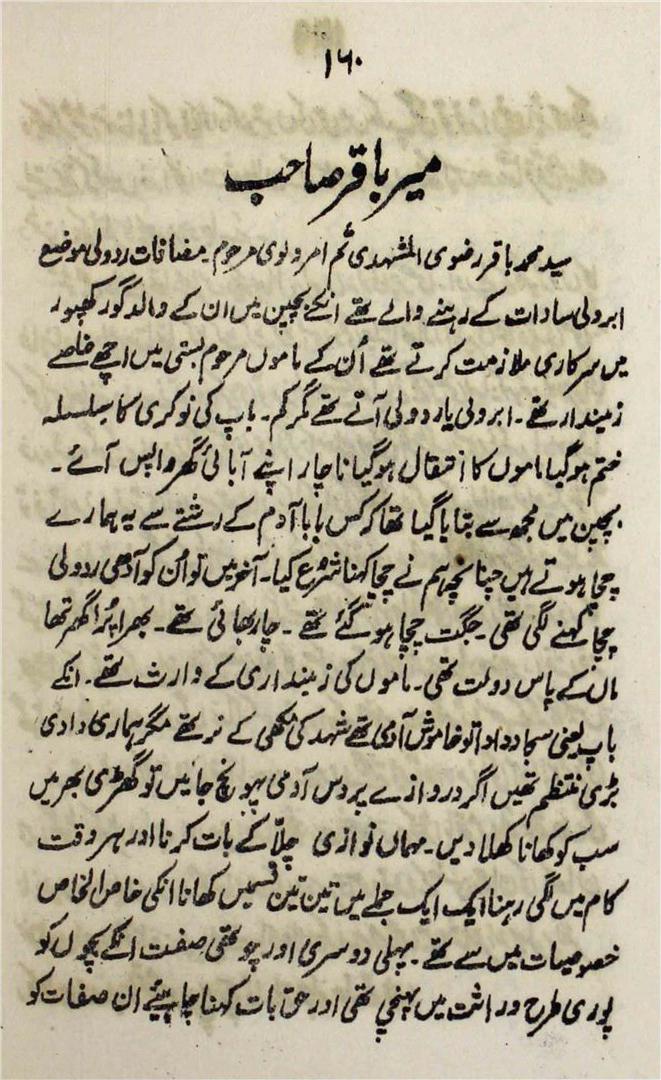 ۱۶۰
میر باقر صاحب
سید محمد باقر رضوی المشہدی ثم امرولوی مرحوم۔ مضافات ردولی موضع
ابرولی سادات کے رہنے والے تھے انکے بچپن میں ان کے والد گورکھپور
میں سرکاری ملازمت کرتے تھے اُن کے ماموں مرحوم بستی میں اچھے خاصے
زمیندار تھے۔ ابرولی یا ردولی آتے تھے مگر کم۔ باپ کی نوکری کا سلسلہ
ختم ہو گیا ماموں کا انتقال ہو گیا ناچار اپنے آبائی گھر واپس آئے۔
بچپن میں مجھ سے بتایا گیا تھا کہ کس بابا آدم کے رشتے سے یہ ہمارے
چچا ہوتے ہیں چنانچہ ہم نے چچا کہنا شروع کیا۔ آخر میں تو اُن کو آدھی ردولی
چچا کہنے لگی تھی۔ جگت چچا ہو گئے تھے۔ چار بھائی تھے۔ بھرا پُرا گھر تھا
ماں کے پاس دولت تھی۔ ماموں کی زمینداری کے وارث تھے۔ انکے
باپ یعنی سجاد دادا تو خاموش آدمی تھے شہد کی مکھی کے نر تھے مگر ہماری دادی
بڑی منتظم تھیں اگر دروازے پر دس آدمی پہونچ جائیں تو گھڑی بھر میں
سب کو کھانا کھلا دیں۔ مہماں نوازی چلّا کے بات کرنا اور ہر وقت
کام میں لگی رہنا ایک ایک جملے میں تین تین قسمیں کھانا انکی خاص الخاص
خصوصیات میں سے تھے۔ پہلی دوسری اور چوتھی صفت انکے بچوں کو
پوری طرح وراثت میں پہنچی تھی اور حق بات کہنا چاہیئے ان صفات کو